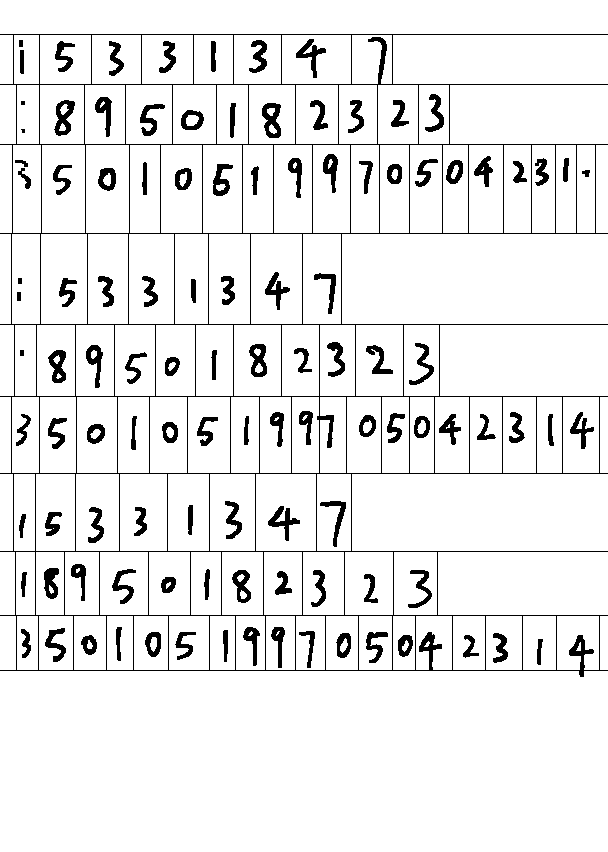 15331347
: 8950182323
35010519970504231·
: 5331347
· 8950182323
350105199705042314
15331347
18950182323
350105199705042314